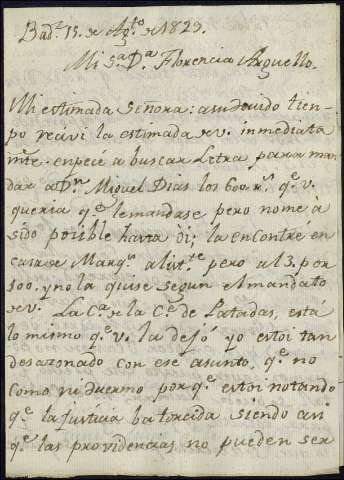 Bad.z 15. de Ag.to de 1829.
Mi S.a D.a Florencia Arguello.
Mi estimada Señora: a su devido tien-
po recivi la estimada de v. inmediata
mte. enpecé a buscar Letra para man
dar a D.n Miguel Dias los 600 r.s q.e v.
queria q.e le mandase pero no me à
sido posible hasta oi; la encontre en
casa de Marq.n a lix.te pero al 3. por
100. y no la quise segun el mandato
de v. La C.a de la C.e de Patadas, está
lo mismo q.e v. la dejó yo estoi tan
desazonado con ese asunto, q.e no
como ni duermo por q.e estoi notando
q.e la Justicia ba torcida siendo asi
q.e las providencias no pueden ser